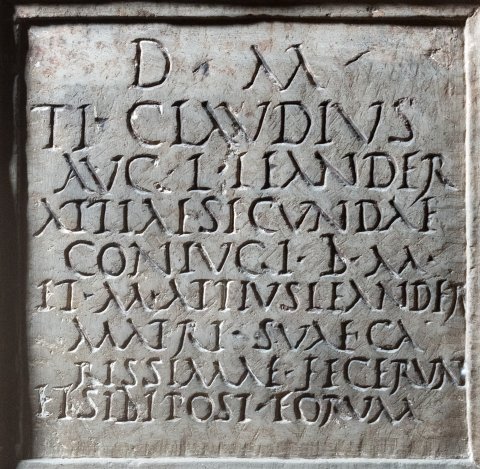 D · M
TI · CLAVDIVS
AVG · L · LEANDER
ATTIAE SECVNDAE
CONIVG · I · B · M ·
ET · M · ATTIVS LEANDER
MATRI · SVAE CA
RISSIMAE · FECERVN
ET SIBI POST · EORVM